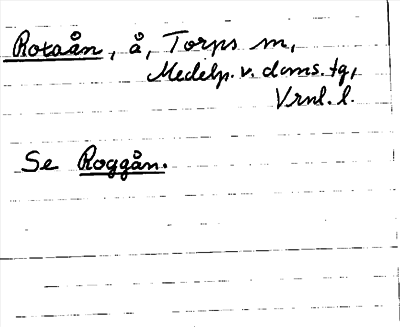 Rotaån, å, Torps m,
Medelp. v. doms. tg,
Vrnl. l.
Se Roggån.